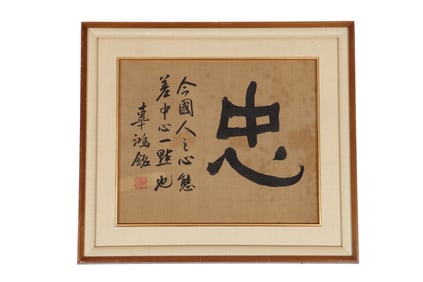 忠
今國人之心態
差中心一點也
辜鴻銘